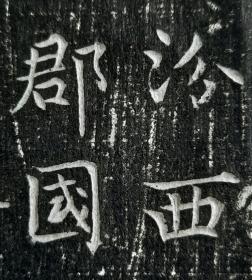 汾西
郡國